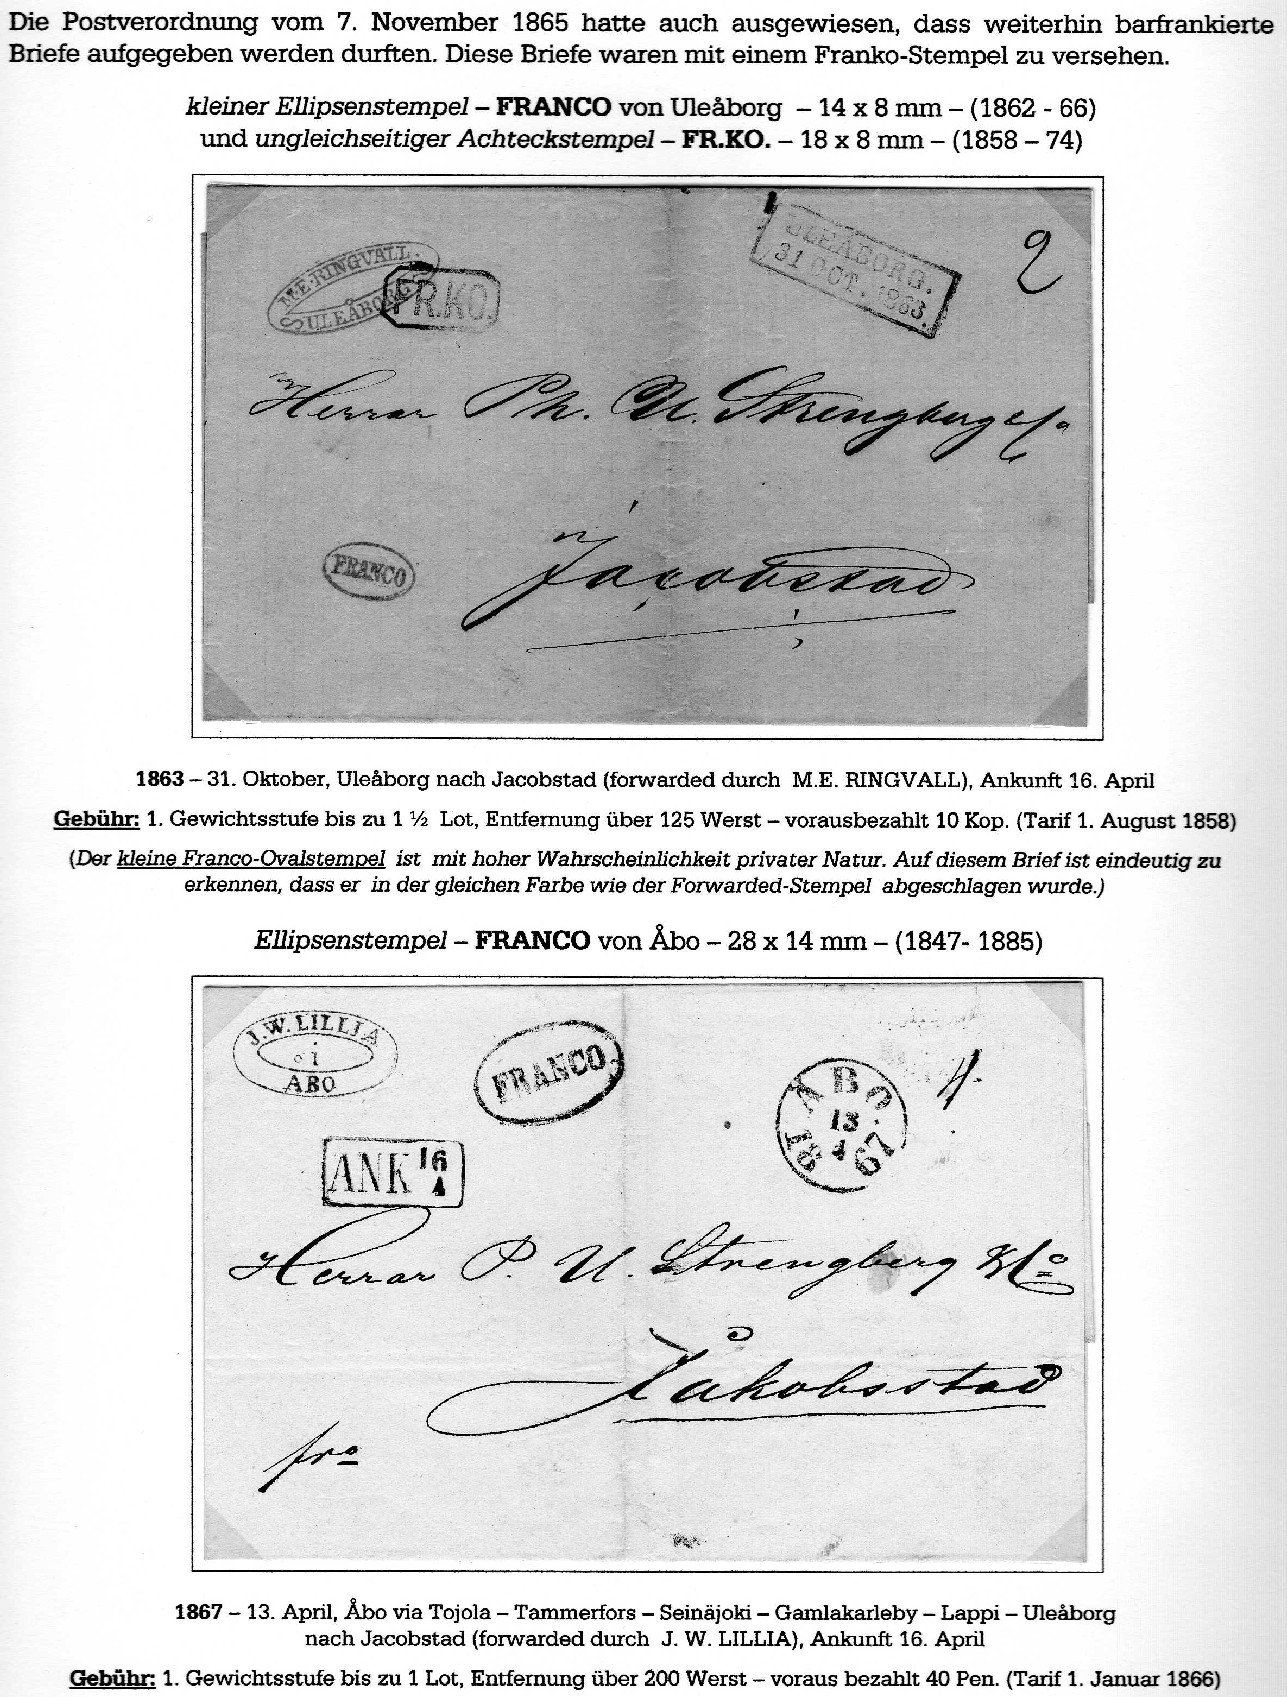 Die Postverordnung vom 7. November 1865 hatte auch ausgewiesen, dass weiterhin barfrankierte
Briefe aufgegeben werden durften. Diese Briefe waren mit einem Franko-Stempel zu versehen.
kleiner Ellipsenstempel – FRANCO von Uleåborg – 14 x 8 mm – (1862 - 66)
und ungleichseitiger Achteckstempel – FR.KO. – 18 x 8 mm – (1858 – 74)
M.E. RINGVALL.
ULEÅBORG
FR.KO.
ULEÅBORG.
31 OCT. 1863.
2
Herrar Ph. U. Strengberg & Co
FRANCO
Jacobstad
1863 – 31. Oktober, Uleåborg nach Jacobstad (forwarded durch M.E. RINGVALL), Ankunft 16. April
Gebühr: 1. Gewichtsstufe bis zu 1 ½ Lot, Entfernung über 125 Werst – vorausbezahlt 10 Kop. (Tarif 1. August 1858)
(Der kleine Franco-Ovalstempel ist mit hoher Wahrscheinlichkeit privater Natur. Auf diesem Brief ist eindeutig zu
erkennen, dass er in der gleichen Farbe wie der Forwarded-Stempel abgeschlagen wurde.)
Ellipsenstempel – FRANCO von Åbo – 28 x 14 mm – (1847- 1885)
J.W. LILLIA
i
ABO
FRANCO
ÅBO.
13
4
18 67
ANK 16
4
Herrar P. U. Strengberg & Co
Jakobsstad
fro
1867 – 13. April, Åbo via Tojola – Tammerfors – Seinäjoki – Gamlakarleby – Lappi – Uleåborg
nach Jacobstad (forwarded durch J. W. LILLIA), Ankunft 16. April
Gebühr: 1. Gewichtsstufe bis zu 1 Lot, Entfernung über 200 Werst – voraus bezahlt 40 Pen. (Tarif 1. Januar 1866)